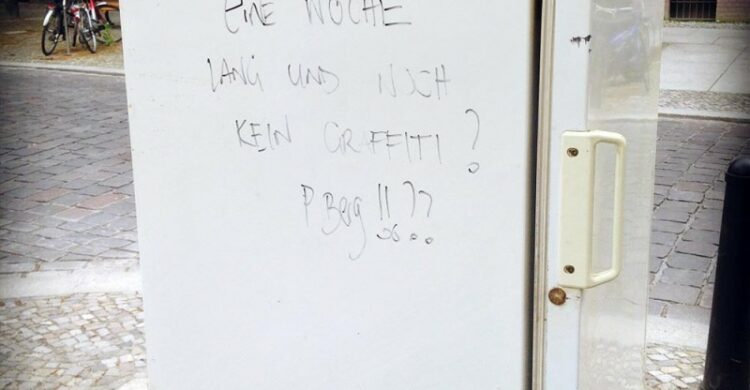 eine WOCHE
LANG UND NOCH
KEIN GRAFFITI?
P Berg!!??